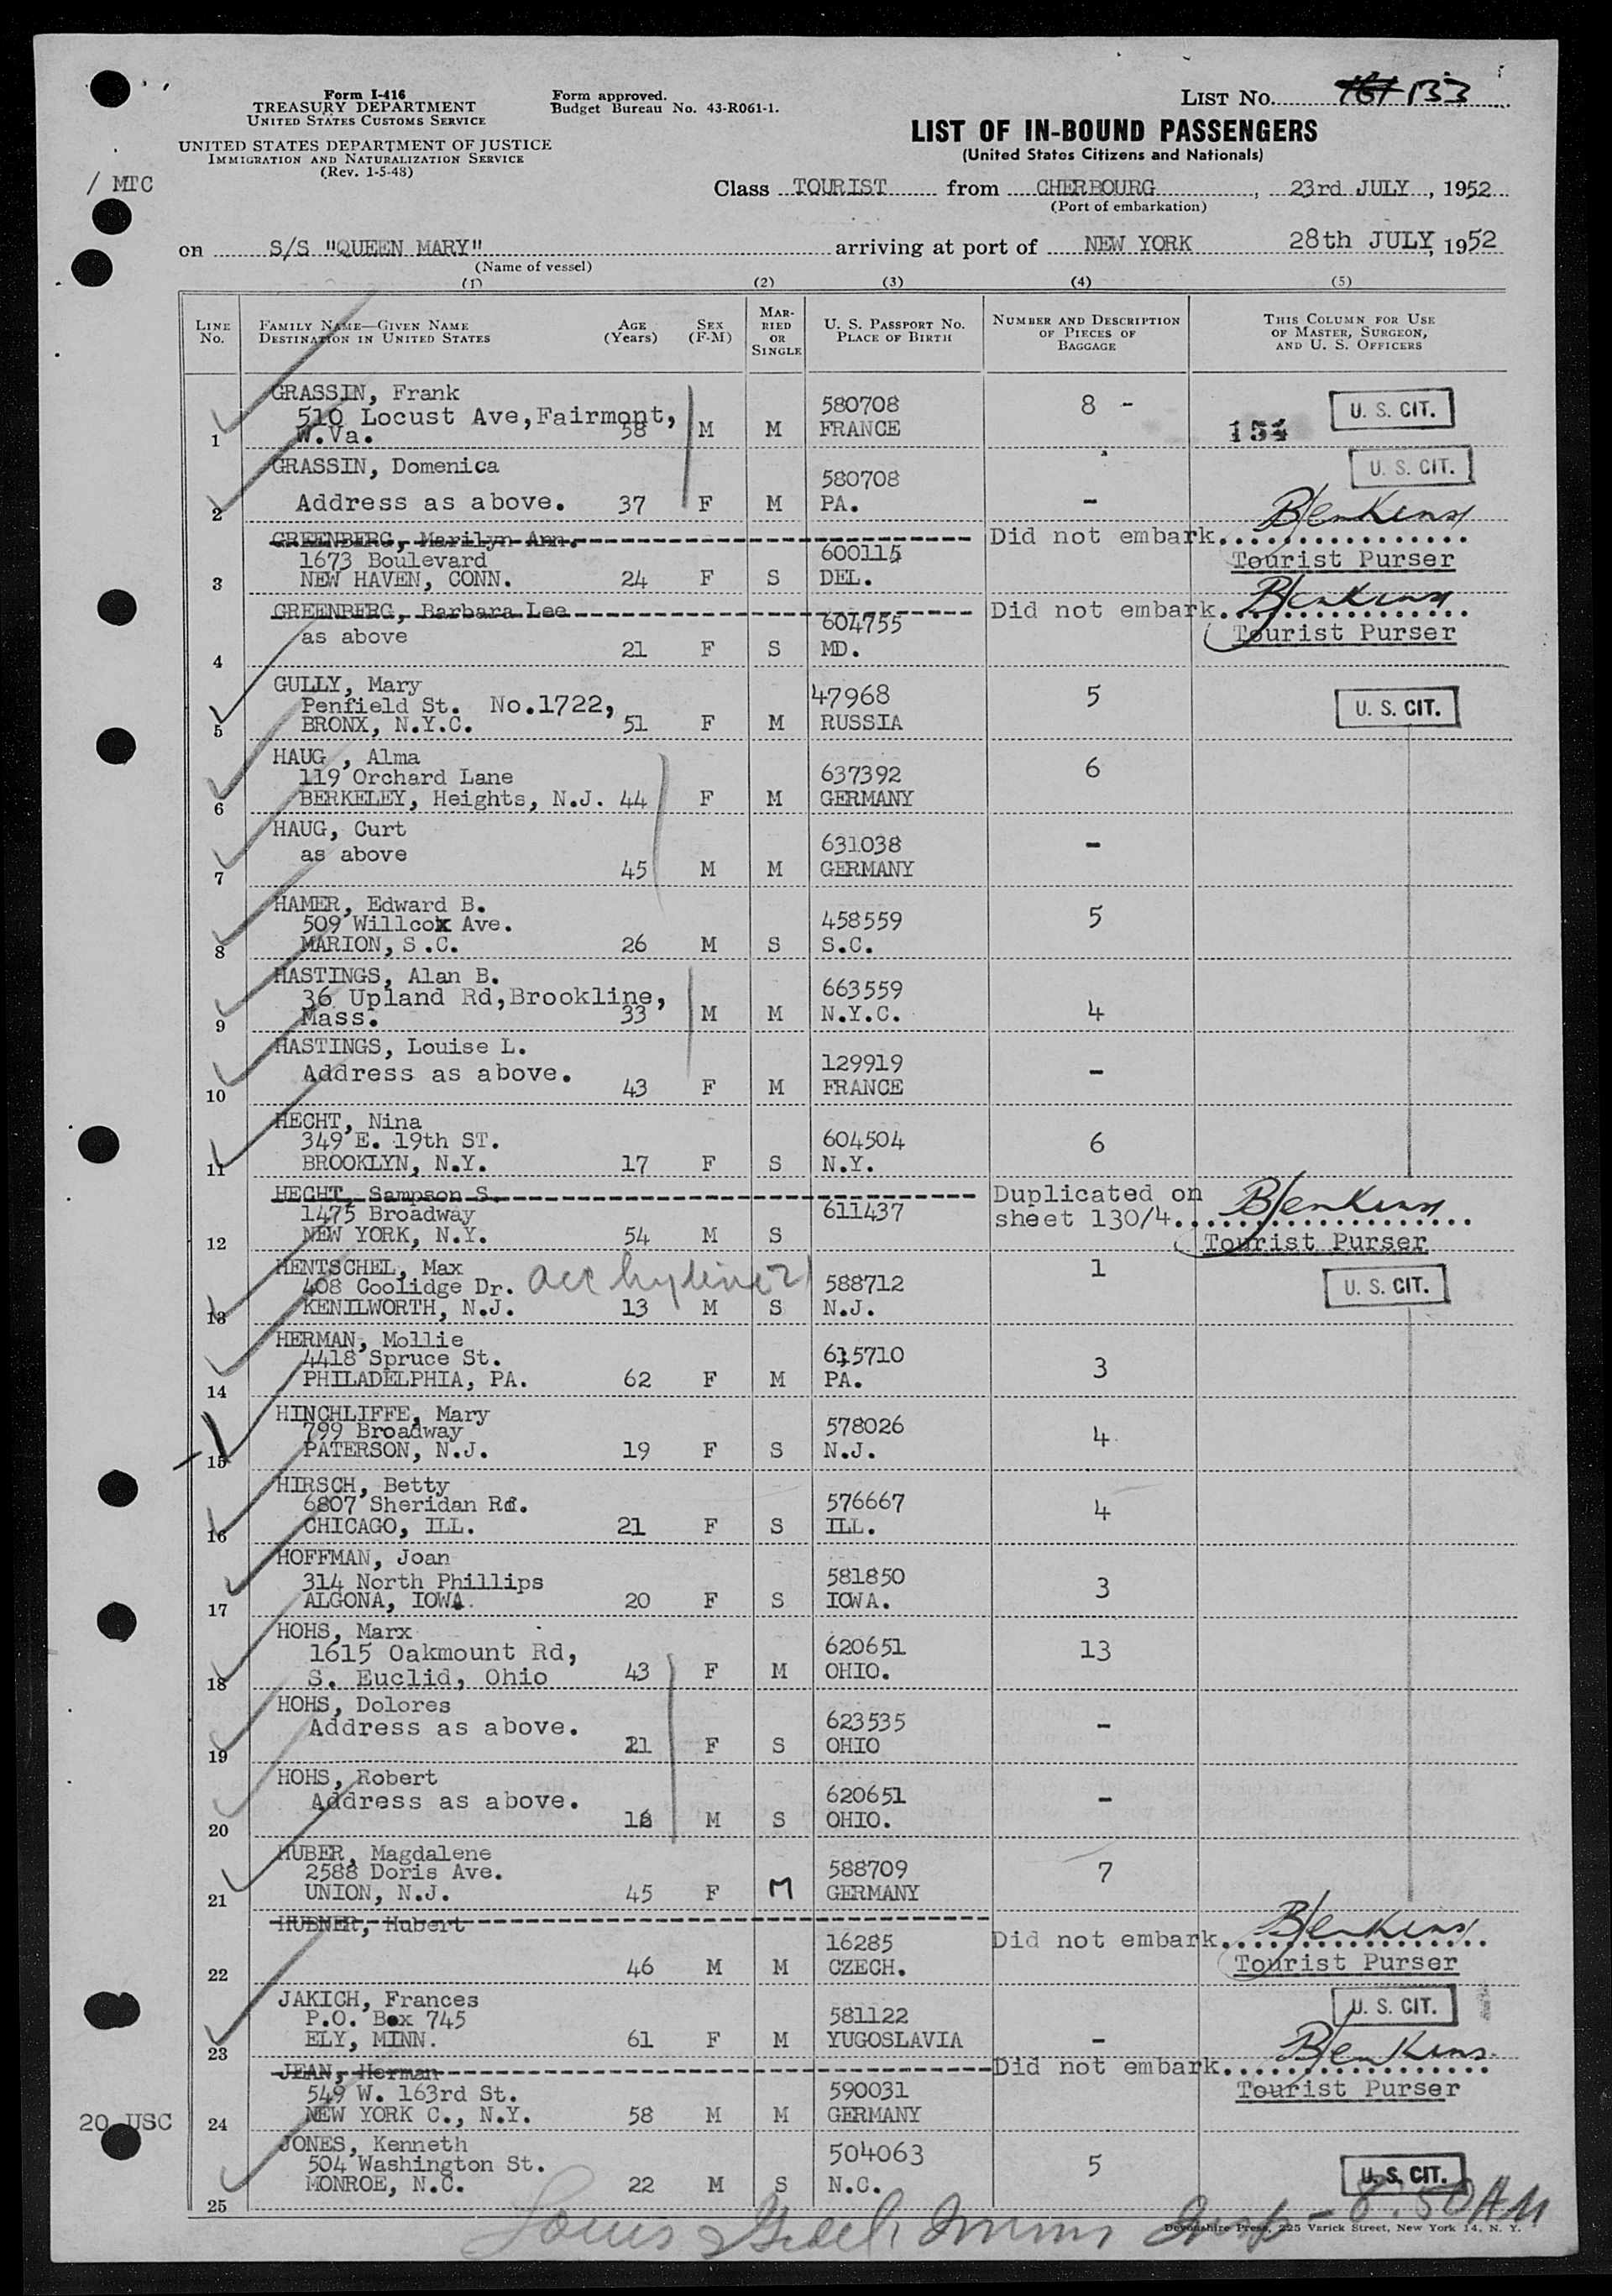 Form I-416
TREASURY DEPARTMENT
UNITED STATES CUSTOMS SERVICE
UNITED STATES DEPARTMENT OF JUSTICE
IMMIGRATION AND NATURALIZATION SERVICE
(Rev. 1-5-48)
Form approved.
Budget Bureau No. 43-R061-1.
LIST No. 133
LIST OF IN-BOUND PASSENGERS
(United States Citizens and Nationals)
/ MTC
Class TOURIST from CHERBOURG, 23rd JULY, 1952
(Port of embarkation)
on S/S "QUEEN MARY" arriving at port of NEW YORK 28th JULY, 1952
(Name of vessel)
(1) (2) (3) (4) (5)
LINE No.
FAMILY NAME—GIVEN NAME
DESTINATION IN UNITED STATES
AGE (Years)
SEX (F-M)
MARRIED OR SINGLE
U. S. PASSPORT NO.
PLACE OF BIRTH
NUMBER AND DESCRIPTION OF PIECES OF BAGGAGE
THIS COLUMN FOR USE OF MASTER, SURGEON, AND U. S. OFFICERS
GRASSIN, Frank 580708 8 - U. S. CIT.
510 Locust Ave, Fairmont,
1 W.Va. 58 M M FRANCE 154
GRASSIN, Domenica 580708 U. S. CIT.
2 Address as above. 37 F M PA. -
GREENBERG, Marilyn Ann. Did not embark. BJenkins
1673 Boulevard 600115 Tourist Purser
3 NEW HAVEN, CONN. 24 F S DEL.
GREENBERG, Barbara Lee Did not embark. BJenkins
as above 604755 Tourist Purser
4 21 F S MD.
GULLY, Mary 47968 5 U. S. CIT.
Penfield St. No.1722,
5 BRONX, N.Y.C. 51 F M RUSSIA
HAUG , Alma 637392 6
119 Orchard Lane
6 BERKELEY, Heights, N.J. 44 F M GERMANY
HAUG, Curt 631038 -
as above
7 45 M M GERMANY
HAMER, Edward B. 458559 5
509 Willcox Ave.
8 MARION, S.C. 26 M S S.C.
HASTINGS, Alan B. 663559
36 Upland Rd, Brookline,
9 Mass. 33 M M N.Y.C. 4
HASTINGS, Louise L. 129919
Address as above. -
10 43 F M FRANCE
HECHT, Nina 604504 6
349 E. 19th ST.
11 BROOKLYN, N.Y. 17 F S N.Y.
HECHT, Sampson S. Duplicated on BJenkins
1475 Broadway 611437 sheet 130/4.
12 NEW YORK, N.Y. 54 M S Tourist Purser
HENTSCHEL, Max 588712 1 U. S. CIT.
408 Coolidge Dr.
13 KENILWORTH, N.J. 13 M S N.J.
HERMAN, Mollie 615710 3
4418 Spruce St.
14 PHILADELPHIA, PA. 62 F M PA.
HINCHLIFFE, Mary 578026 4
799 Broadway
15 PATERSON, N.J. 19 F S N.J.
HIRSCH, Betty 576667 4
6807 Sheridan Rd.
16 CHICAGO, ILL. 21 F S ILL.
HOFFMAN, Joan 581850 3
314 North Phillips
17 ALGONA, IOWA. 20 F S IOWA.
HOHS, Marx 620651 13
1615 Oakmount Rd,
18 S. Euclid, Ohio 43 F M OHIO.
HOHS, Dolores 623535 -
Address as above.
19 21 F S OHIO
HOHS, Robert 620651 -
Address as above.
20 M S OHIO.
HUBER, Magdalene 588709 7
2588 Doris Ave.
21 UNION, N.J. 45 F M GERMANY
HUBNER, Hubert BJenkins
16285 Did not embark.
22 46 M M CZECH. Tourist Purser
JAKICH, Frances 581122 U. S. CIT.
P.O. Box 745
23 ELY, MINN. 61 F M YUGOSLAVIA -
JEAN, Herman Did not embark. BJenkins
549 W. 163rd St. 590031 Tourist Purser
24 NEW YORK C., N.Y. 58 M M GERMANY
20 USC
JONES, Kenneth 504063 5 U. S. CIT.
504 Washington St.
25 MONROE, N.C. 22 M S N.C.
Louis Immn Insp - 8:50 AM
Devonshire Press, 225 Varick Street, New York 14, N. Y.